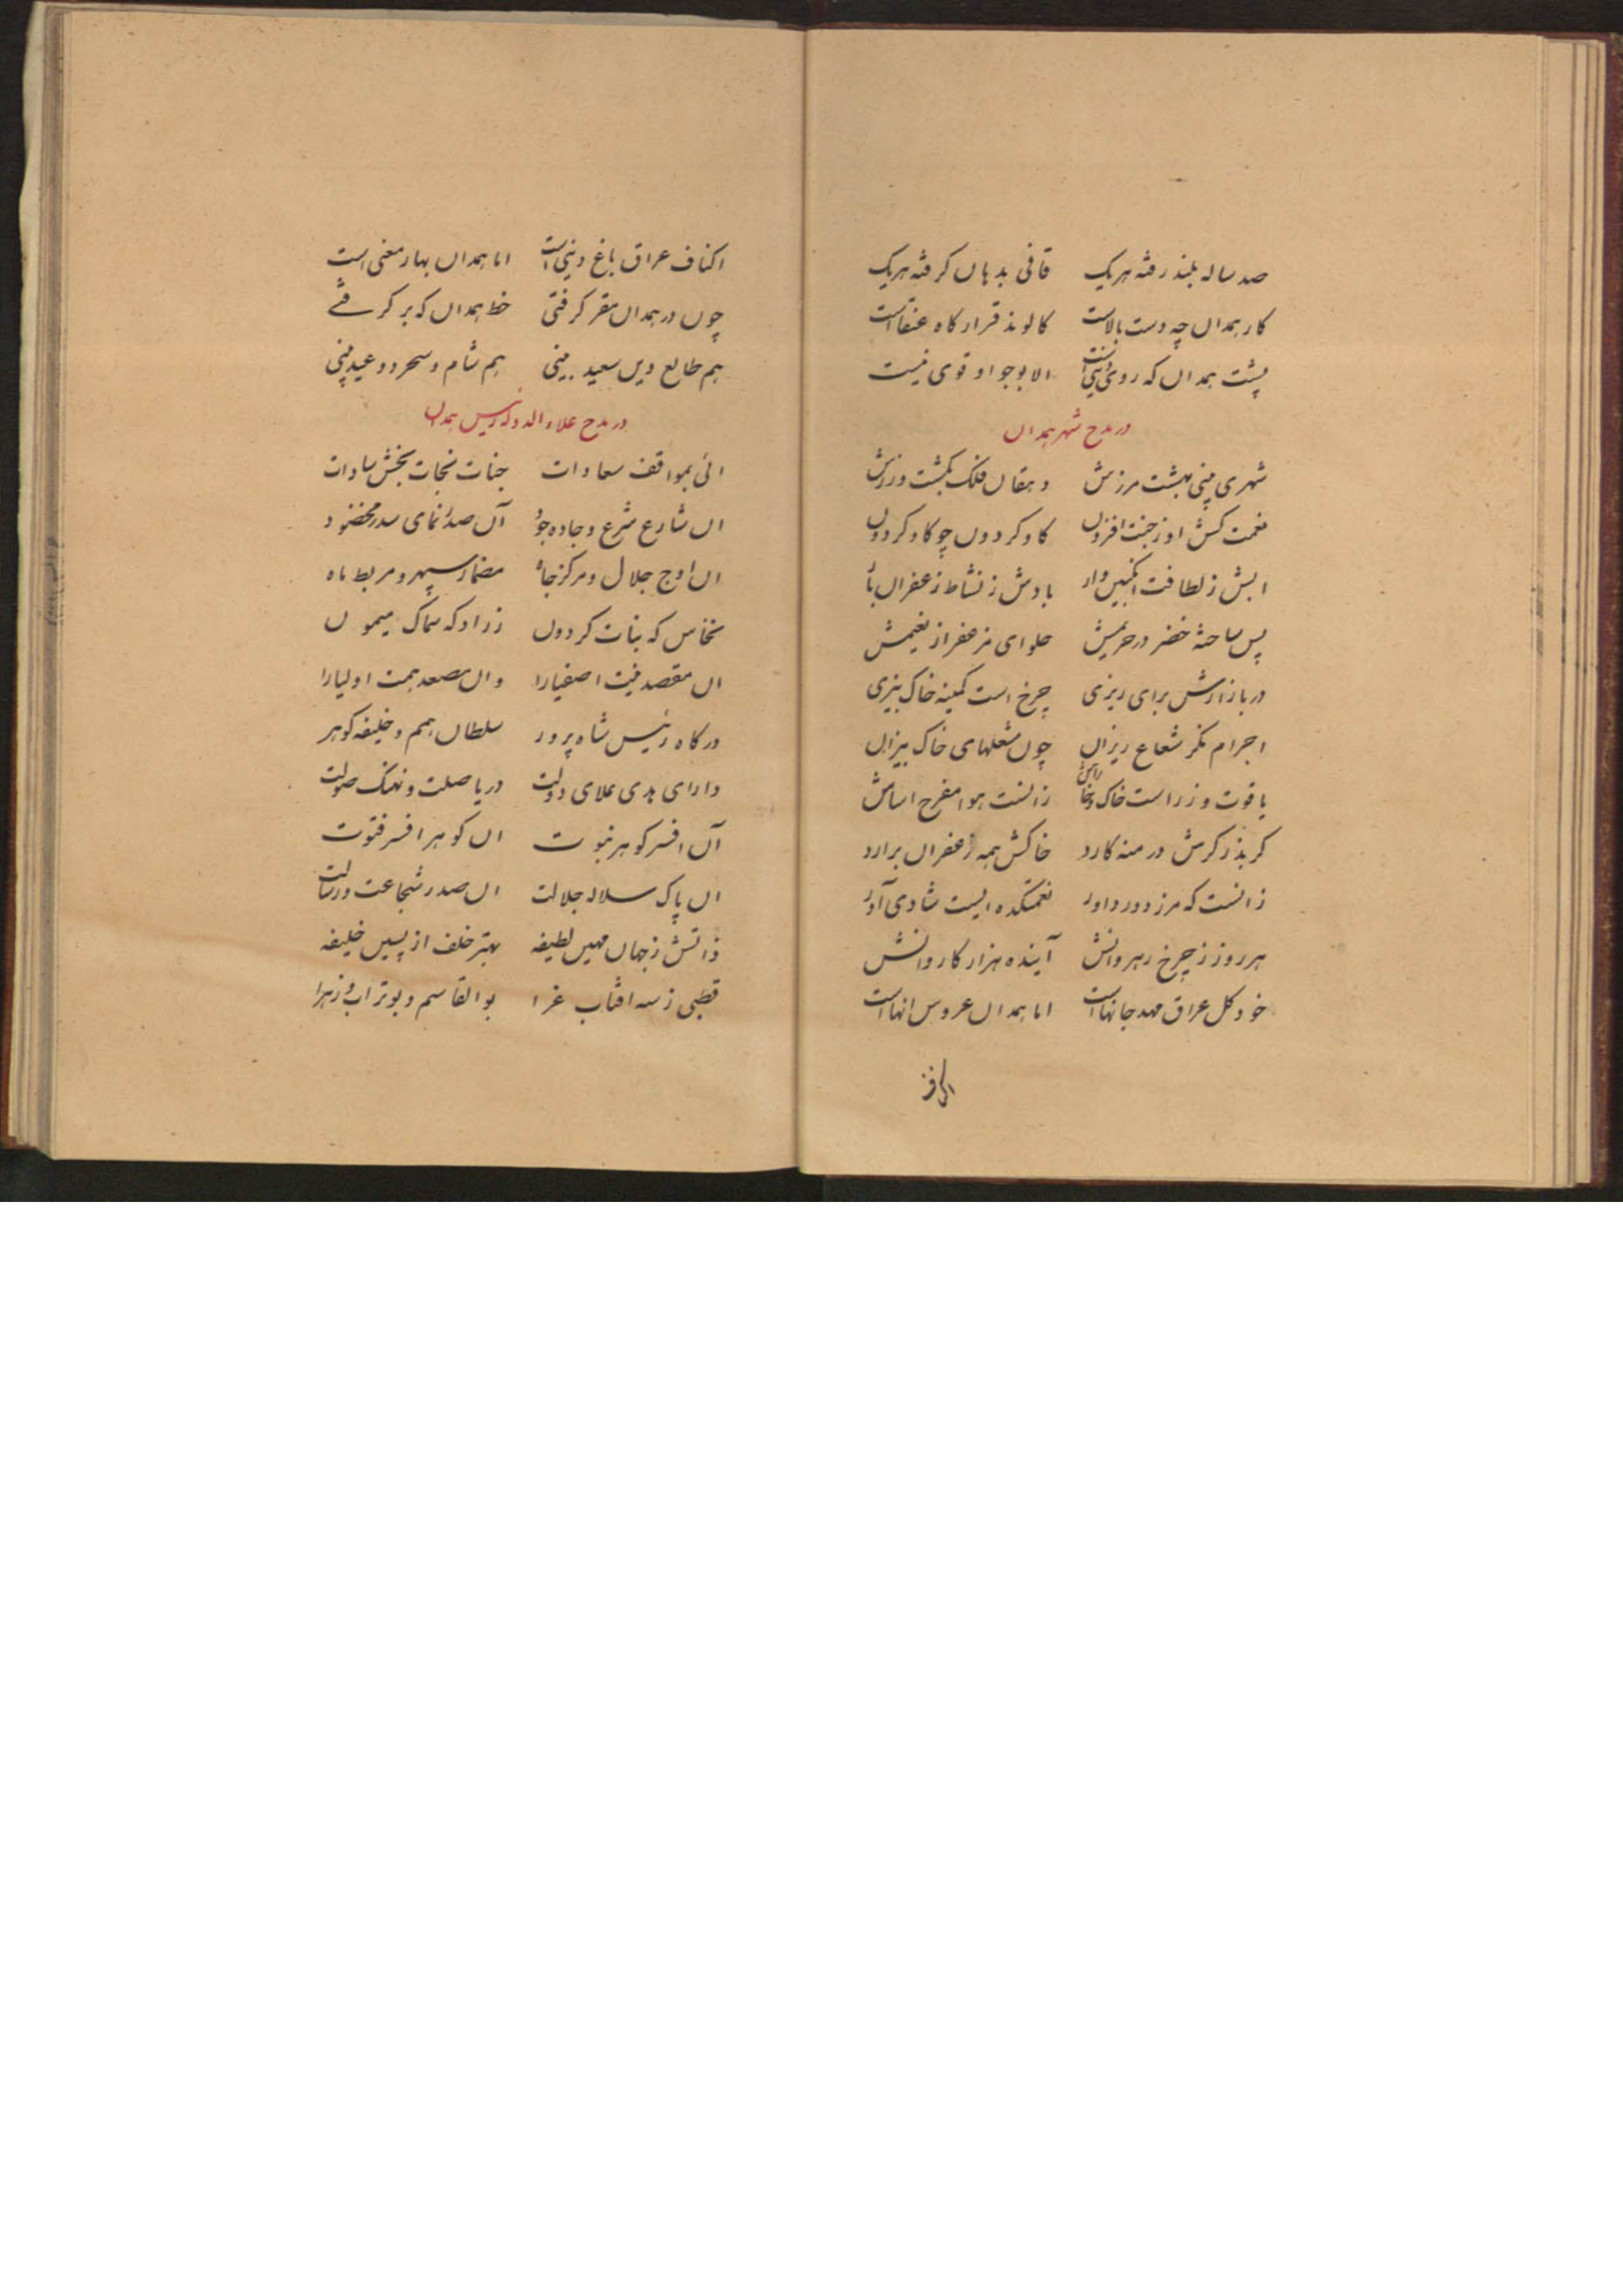 صد ساله بلند رفته هریک قافی بدهان کرفته هریک
کار همدان چه دست بالاست کالوند قرارکاه عنقاست
پشت همدان که روی دنیی است الا بوجود او قوی نیست
در مدح شهر همدان
شهری بینی بهشت مرزش دهقان فلک بکشت ورزش
نعمت کش او ز جنت افزون کاو کردون چو کاو کردون
ابش ز لطافت انکبین وار بادش ز نشاط زعفران بار
پس ساخته خضر در حریمش حلوای مزعفر از نعیمش
در بازارش برای ریزی چرخ است کمینه خاک بیزی
اجرام نکر شعاع ریزان چون مشعلهای خاک بیزان
یاقوت و زر است خاک و زانست هوا مفرح اساسش
کر بذرکرش درمنه کارد خاکش همه زعفران برارد
زانست که مرز دور داور نعمتکده ایست شادی آور
هر روز ز چرخ رهروانش آینده هزار کاروانش
خود کل عراق مهد جانهاست اما همدان عروس انهاست
اکناف
اکناف عراق باغ دنیی است اما همدان بهار معنی است
چون در همدان مقر کرفتی خط همدان که بر کرفتی
هم طالع دین سعید بینی هم شام و سحر دو عید بینی
در مدح علاء الدوله رئیس همدان
ائی بمواقف سعادات جنات نجات بخش سادات
ان شارع شرع و جاده جود آن صدر نمای سدر مخضود
ان اوج جلال و مرکز جاه مضمار سپهر و مربط ماه
نخاس که بنات کردون زرادکه سماک میمون
ان مقصد نیت اصفیارا وان مصعد همت اولیارا
درکاه رئیس شاه پرور سلطان همم و خلیفه کوهر
دارای هدی علای دولت دریا صلت و نهنک صولت
آن افسر کوهر نبوت ان کوهر افسر فتوت
ان پاک سلاله جلالت ان صدر شجاعت و رسالت
ذاتش ز جهان مهین لطیفه بهتر خلف از پسین خلیفه
قطبی ز سه افتاب غرا بوالقاسم و بوتراب و زهرا